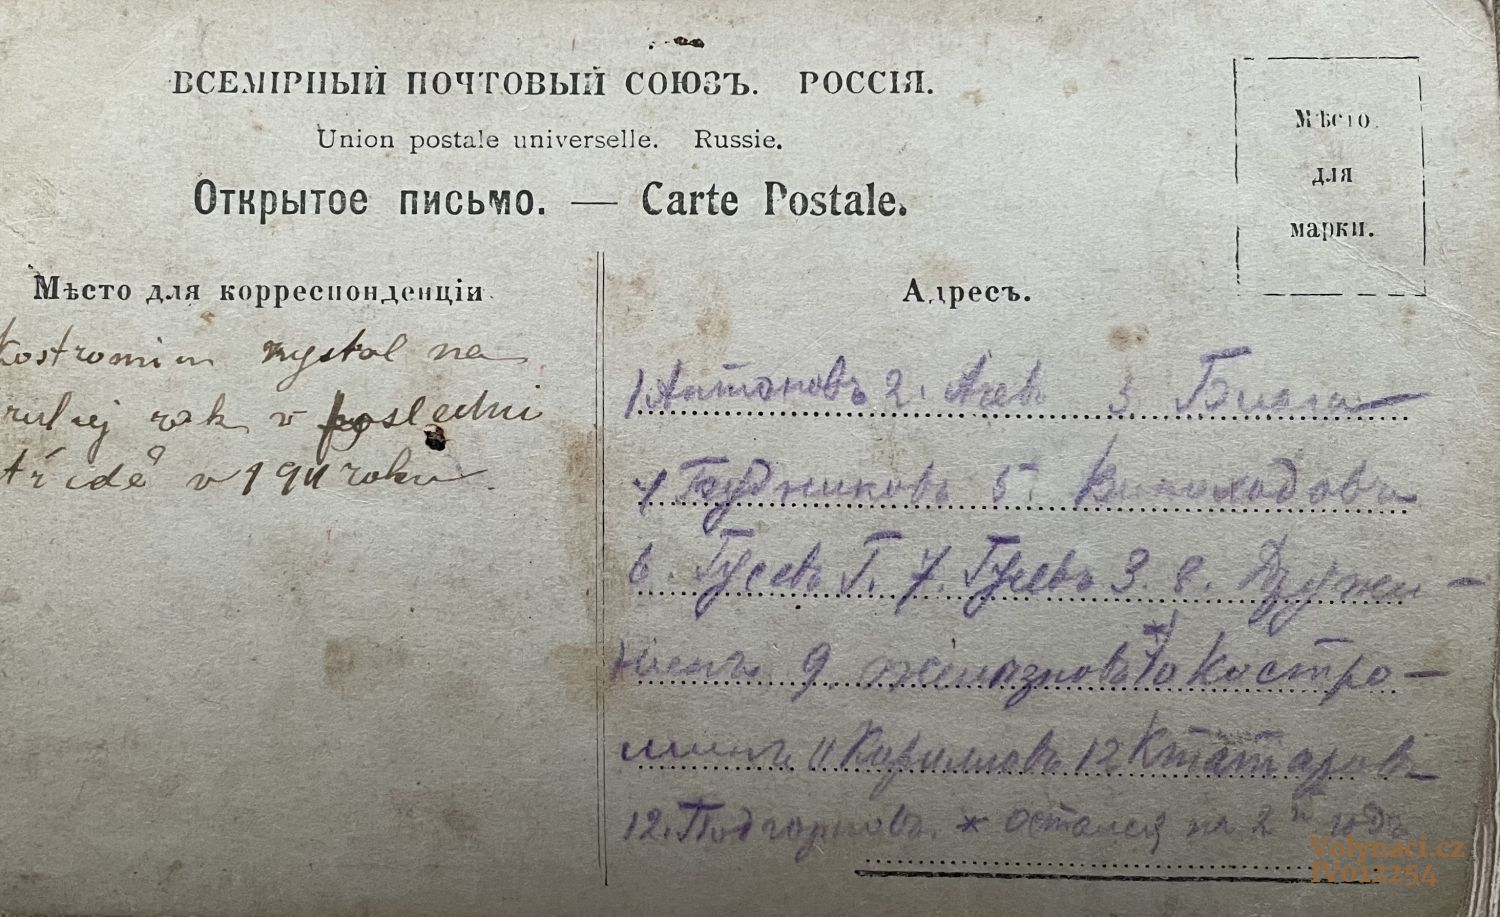 ВСЕМІРНЫЙ ПОЧТОВЫЙ СОЮЗЪ. РОССІЯ.
Union postale universelle. Russie.
Открытое письмо. — Carte Postale.
Мѣсто
для
марки.
Мѣсто для корреспонденціи
Адресъ.
Kostromin zystal na
druhej rok v posledni
třidě v 1911 roku.
1 Антоновъ 2. Ачевъ 3.
4 Грудниковъ 5. Виноходовъ
6. Гусевъ Г. 7. Гусевъ З. 8. Дружи-
нинъ 9. *) 10 Костро-
минъ 11 Кириловъ 12 Ктатаровъ
12. Подгорновъ. * остался на 2й годъ
Volynaci.cz
IV012254